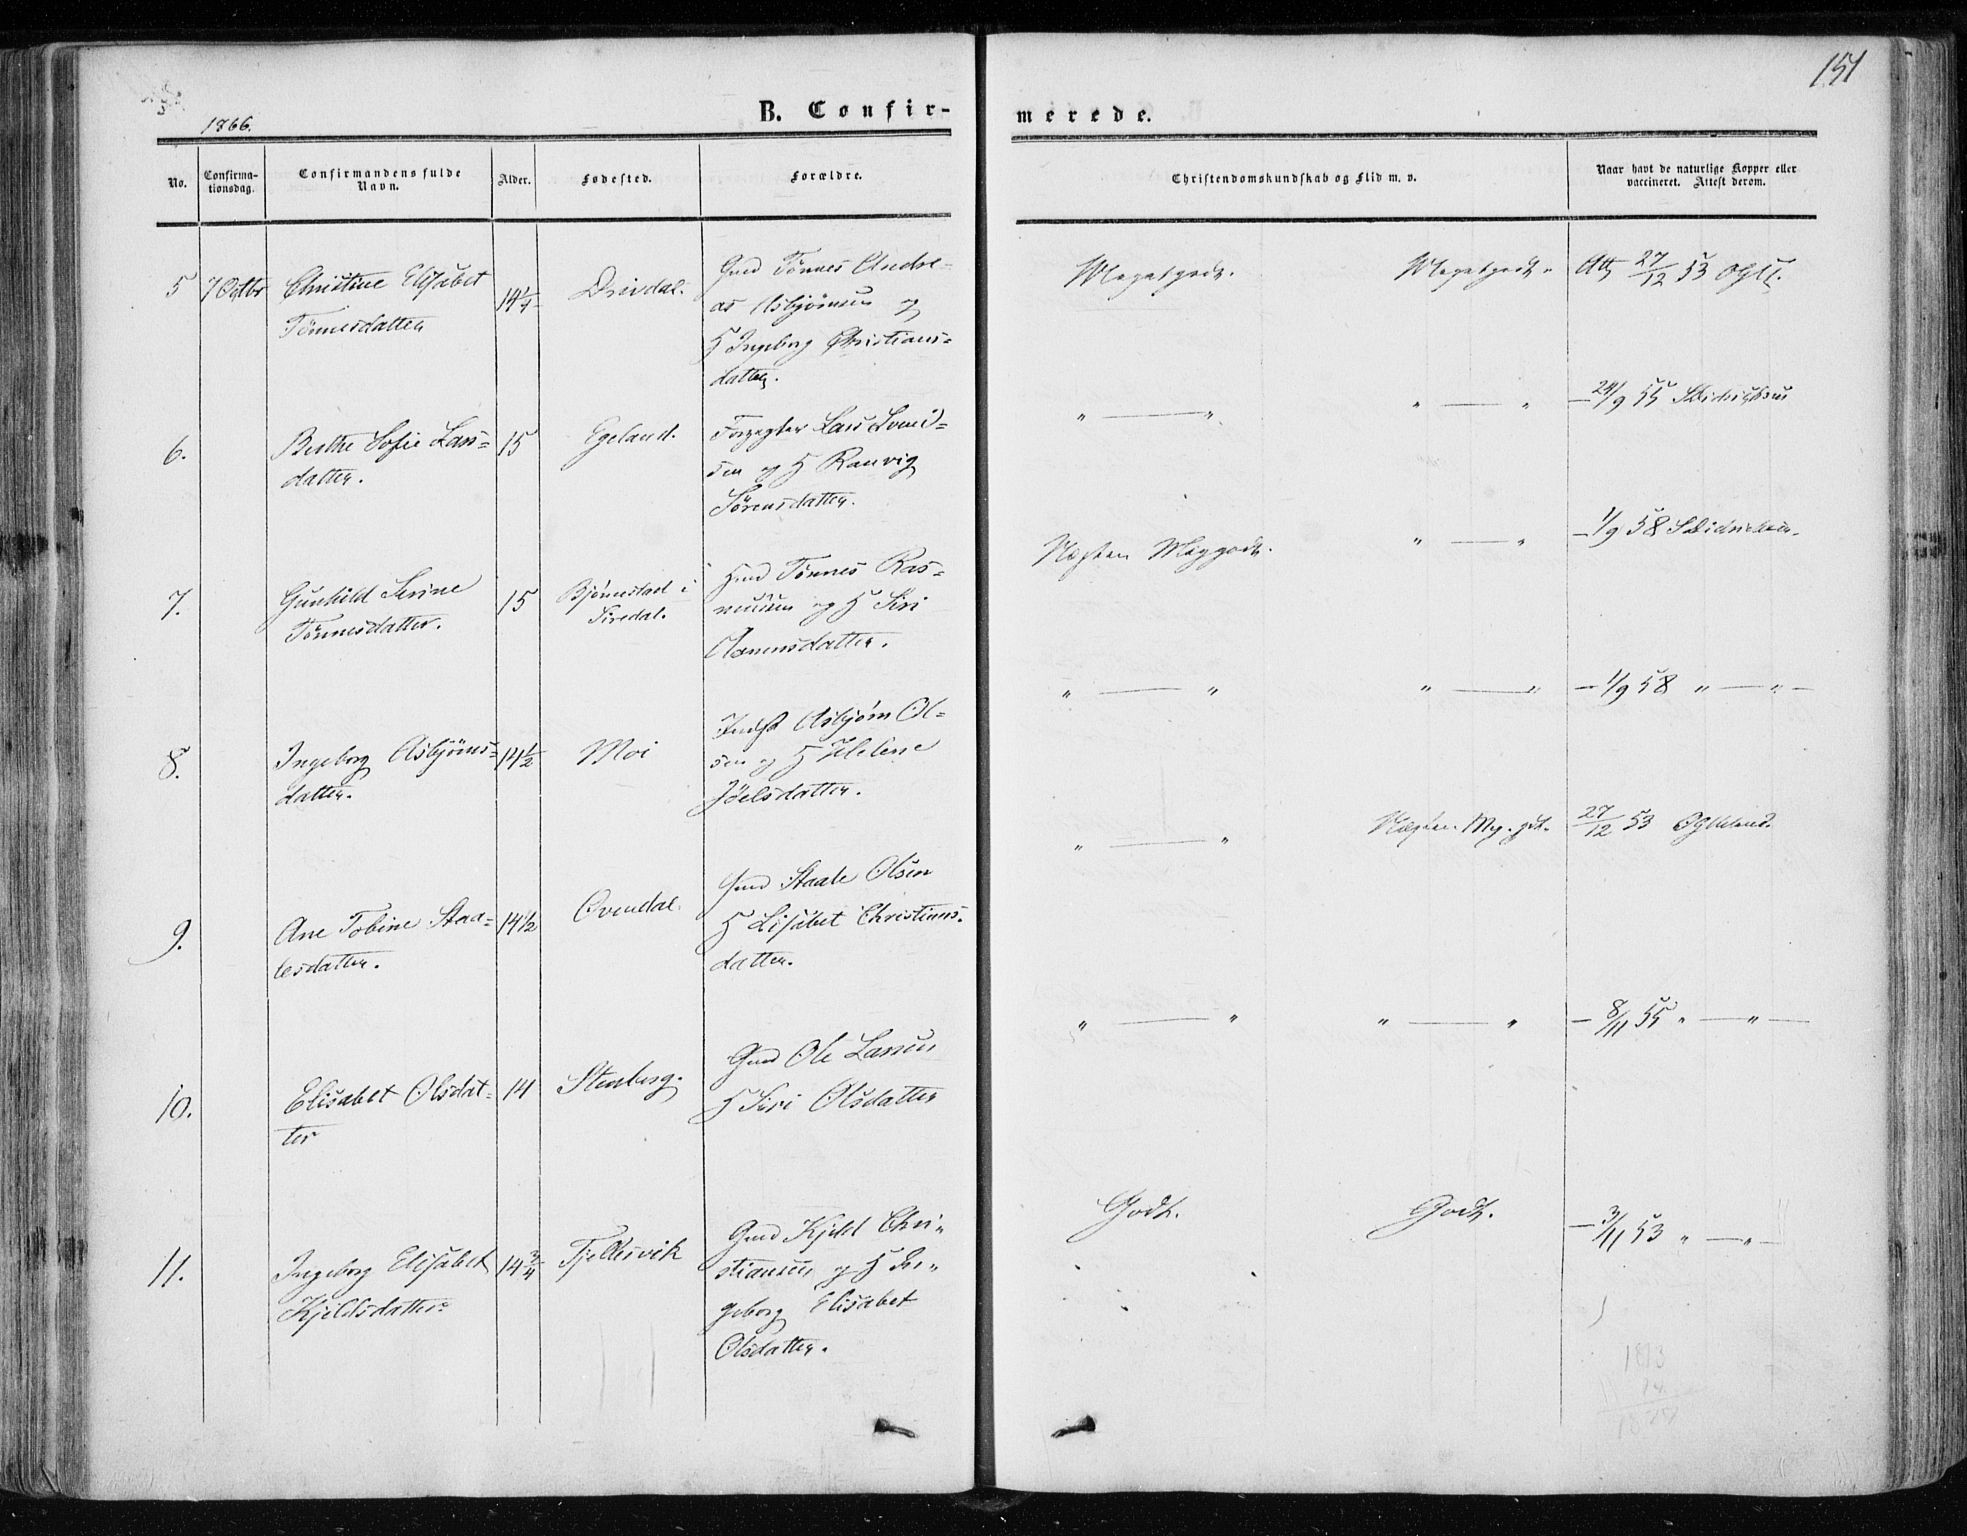 151
1866.
B. Confir-
merede.
No.
Confirma-
tionsdag.
Confirmandens fulde
Navn.
Alder.
Fødested.
Forældre.
Christendomskundskab og Flid m. v.
Naar havt de naturlige Kopper eller
vaccineret. Attest derom.
5 7 Octbr Christine Elisabet
Tønnesdatter
14 1/4
Drivdal.
Gmd Tønnes Andre-
as Asbjørnsen og
H Ingeborg Christians-
datter.
Megetgodt. Megetgodt. Att. 27/12 53
6. Berthe Sofie Lars-
datter.
15 Egeland.
Lars Svend-
sen og H Ranvig
Sørensdatter.
" — " " — " — 24/9 55
7. Gunhild Serine
Tønnesdatter.
15 Bjørnestad i
Siredal.
Gmd Tønnes Ras-
mussen og H Siri
Aanensdatter.
Næsten Meg. godt. " — " — 1/9 58
8. Ingeborg Asbjørns-
datter.
14 1/2 Moi
Asbjørn Ol-
sen og H Helene
Joelsdatter.
" — " " — " — 1/9 58 " — " —
9. Ane Tobine Staa-
lesdatter.
14 1/2 Ovendal.
Gmd Staale Olsen
H Lisabet Christians-
datter.
" — " Næsten Meg. godt. 27/12 53
10. Elisabet Olsdat-
ter
14 Stenberg.
Gmd Ole Larsen
H Siri Olsdatter
" — " " — " — 8/11 55 " — " —
11. Ingeborg Elisabet
Kjeldsdatter.
14 3/4 Fjeldsvik
Gmd Kjeld Chri-
stiansen og H In-
geborg Elisabet
Olsdatter.
Godt. Godt. — 3/11 53 " — " —
1813